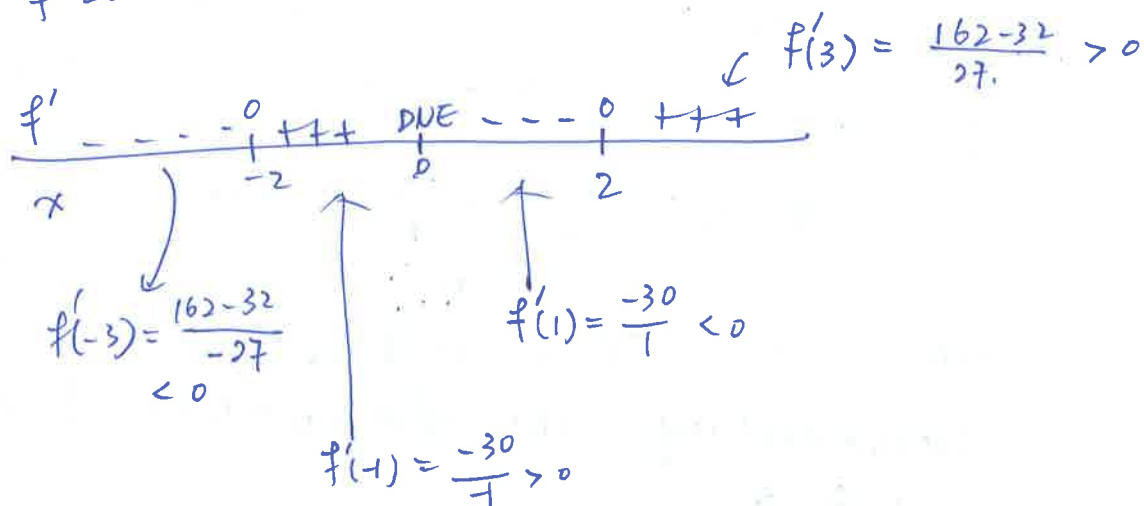 f'(3) = (162-32)/27. > 0
f' - - - - 0 +++ DNE - - - 0 +++
x -2 0 2
f'(-3) = (162-32)/-27 < 0
f'(1) = -30/1 < 0
f'(-1) = -30/-1 > 0